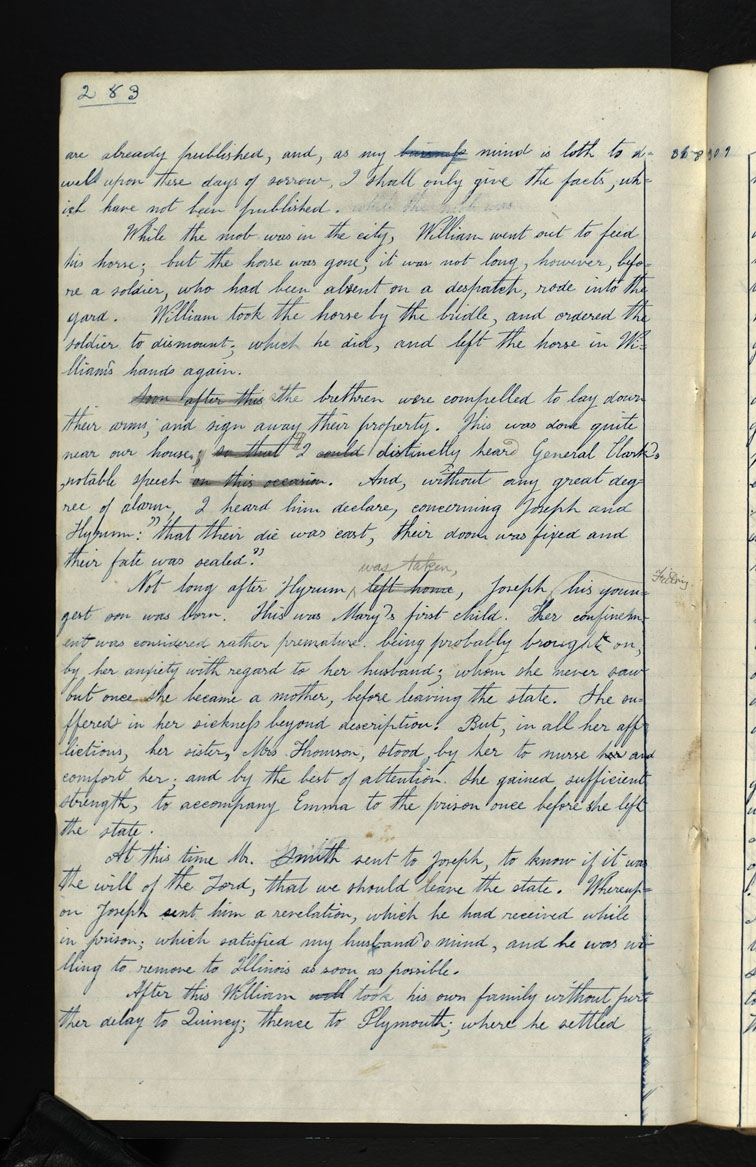 283
are already published, and, as my business mind is loth to d-
well upon these days of sorrow, I shall only give the facts, wh-
ich have not been published.
While the mob was in the city, William went out to feed
his horse; but the horse was gone; it was not long, however, befo-
re a soldier, who had been absent on a despatch, rode into the
yard. William took the horse by the bridle, and ordered the
soldier to dismount; which he did, and left the horse in Wi-
lliam's hands again.
Soon after this the brethren were compelled to lay down
their arms; and sign away their property. This was done quite
near our house; so that I could distinctly heard General Clark's
notable speech on this occasion. And, without any great deg-
ree of alarm, I heard him declare, concerning Joseph and
Hyrum: "that their die was cast, their doom was fixed and
their fate was sealed."
was taken,
Not long after Hyrum left home, Joseph his youn-
gest son was born. This was Mary's first child. Her confinem-
ent was considered rather premature. being probably brought on,
by her anxiety with regard to her husband; whom she never saw
but once she became a mother, before leaving the state. She su-
ffered in her sickness beyond description. But, in all her aff-
lictions, her sister, Mrs. Thomson, stood by her to nurse her and
comfort her; and by the best of attention. She gained sufficient
strength, to accompany Emma to the prison once before she left
the state.
At this time Mr. Smith sent to Joseph, to know if it was
the will of the Lord, that we should leave the state. Whereup-
on Joseph sent him a revelation, which he had received while
in prison; which satisfied my husband's mind, and he was wi-
lling to remove to Illinois as soon as possible.
After this William took his own family without fur-
ther delay to Quincy; thence to Plymouth; where he settled